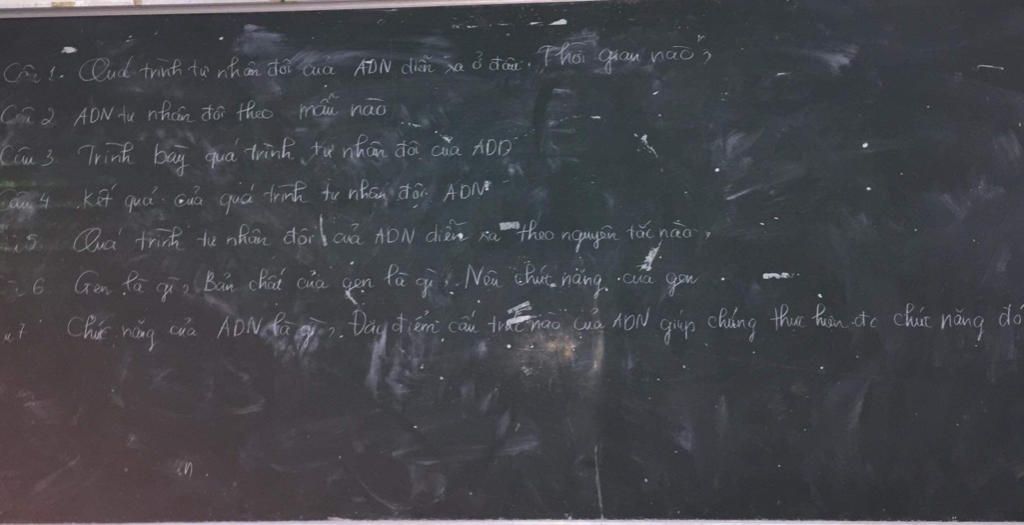 Câu 1. Quá trình tự nhân đôi của ADN diễn xa ở đâu. Thời gian nào?
Câu 2 ADN tự nhân đôi theo mẫu nào
Câu 3 Trình bày quá trình tự nhân đôi của ADD
Câu 4 Kết quả của quá trình tự nhân đôi ADN
5 Quá trình tự nhân đôi của ADN diễn xa theo nguyên tắc nào?
6 Gen là gì? Bản chất của gen là gì? Nêu chức năng của gen
7 Chức năng của ADN là gì? Đặc điểm cấu trúc nào của ADN giúp chúng thực hiện đc chức năng đó